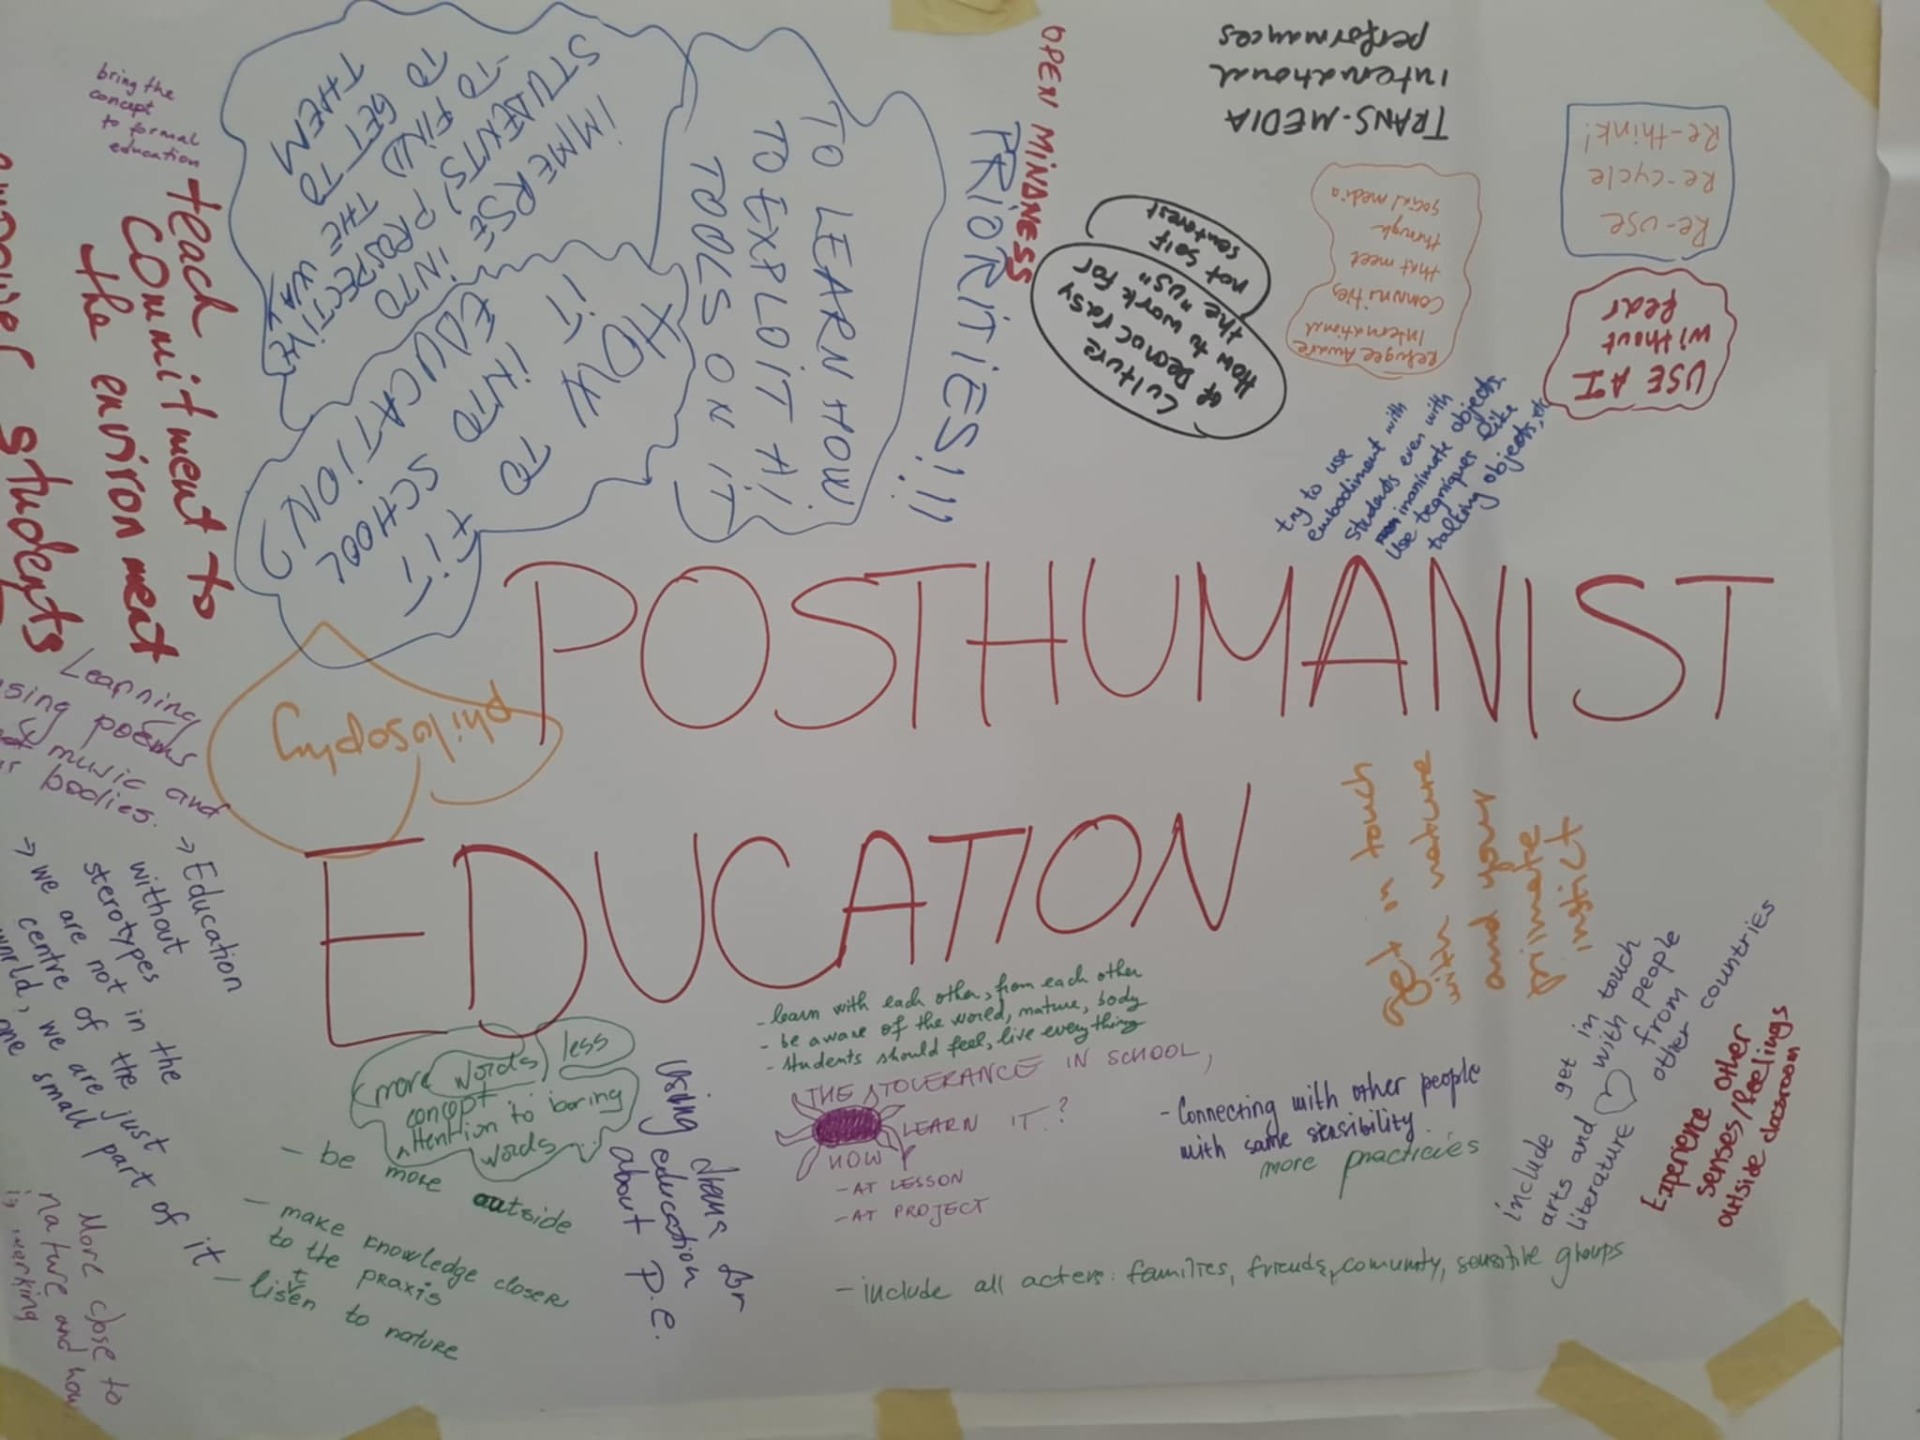 POSTHUMANIST
EDUCATION
bring the
concept
to formal
education
teach
commitment to
the environment
students
IMMERSE
STUDENTS INTO
THE PROSPECTIVE
TO FIND
THE WAY
TO GET TO
THEM
HOW TO
FIT
IT INTO
SCHOOL
EDUCATION?
TO LEARN HOW
TO EXPLOIT IT!
TOOLS ON IT
PRIORITIES!!!
OPEN MINDNESS
TRANS-MEDIA
international
performances
Culture
of Democrasy
How to work for
the "US"
not self
Refugee Aware
International
Communities
that meet
through
social media
Re-use
Re-cycle
Re-think!
USE AI
without
fear
try to use
embodiment with
students even with
inanimate objects.
Use teqniques like
talking objects, etc
philosophy
Learning
poems
& music and
bodies.
→ Education
without
sterotypes
→ we are not in the
centre of the
world, we are just
one small part of it
More close to
nature and how
is working
get in touch
with nature
and your
primate
instict
- learn with each other, from each other
- be aware of the world, nature, body
- students should feel, live everything
more words less
concept
attention to boring
words
- be more outside
- make knowledge closer
to the praxis
- listen to nature
Using drama for
education
about P.E.
THE TOLERANCE IN SCHOOL,
HOW LEARN IT?
- AT LESSON
- AT PROJECT
- Connecting with other people
with same sensibility.
more practicies
- include all acters: families, friends, comunity, sensitive groups
include
arts and
literature
get in touch
with people
from
other countries
Experience other
senses/feelings
outside classroom